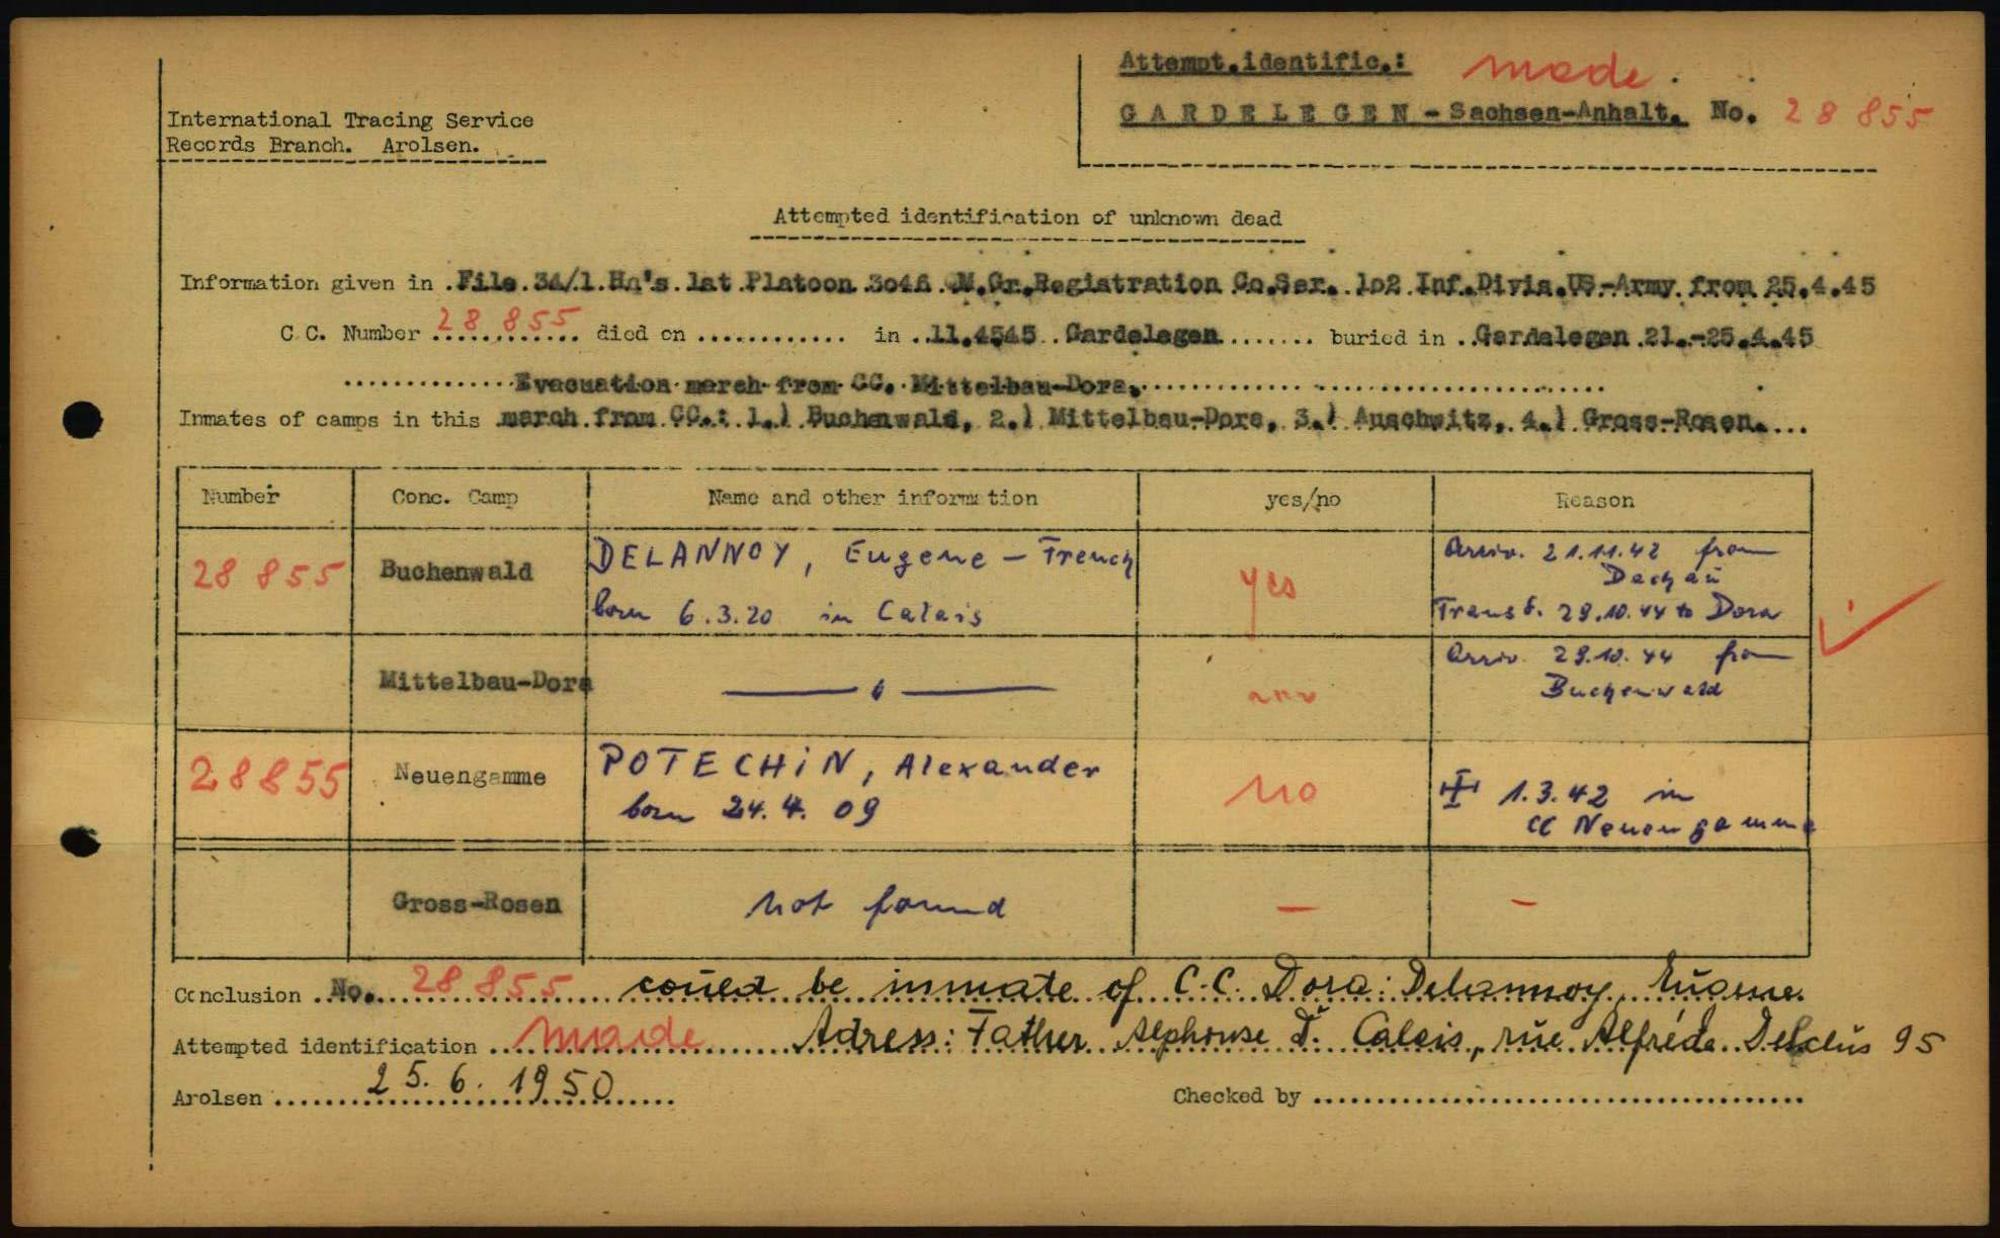 Attempt.identific.: made.
International Tracing Service
GARDELEGEN - Sachsen-Anhalt. No. 28 855
Records Branch. Arolsen.
Attempted identification of unknown dead
Information given in .File.34/1.Hq's.1st.Platoon.3046..M.Gr.Registration Co.Ser..1o2.Inf.Divis.US-Army.from 25.4.45
C.C. Number 28 855 died on ............ in ..11.4545..Gardelegen........ buried in ..Gardelegen.21.-25.4.45
Evacuation march from CC. Mittelbau-Dora.
Inmates of camps in this march from CC.: 1.) Buchenwald, 2.) Mittelbau-Dora, 3.) Auschwitz, 4.) Gross-Rosen....
Number Conc. Camp Name and other information yes/no Reason
28 855 Buchenwald DELANNOY, Eugene - French yes Arriv. 21.11.42 from
Dachau
born 6.3.20 in Calais Transf. 29.10.44 to Dora
Mittelbau-Dora Arriv. 29.10.44 from
Buchenwald
28855 Neuengamme POTECHIN, Alexander no 1.3.42 in
born 24.4.09 CC Neuengamme
Gross-Rosen not found — —
Conclusion ..No. 28 855 could be inmate of C.C. Dora: Delannoy, Eugene.
Attempted identification made Adress: Father Alphonse D. Calais, rue Alfréde 95
Arolsen 25.6.1950 Checked by